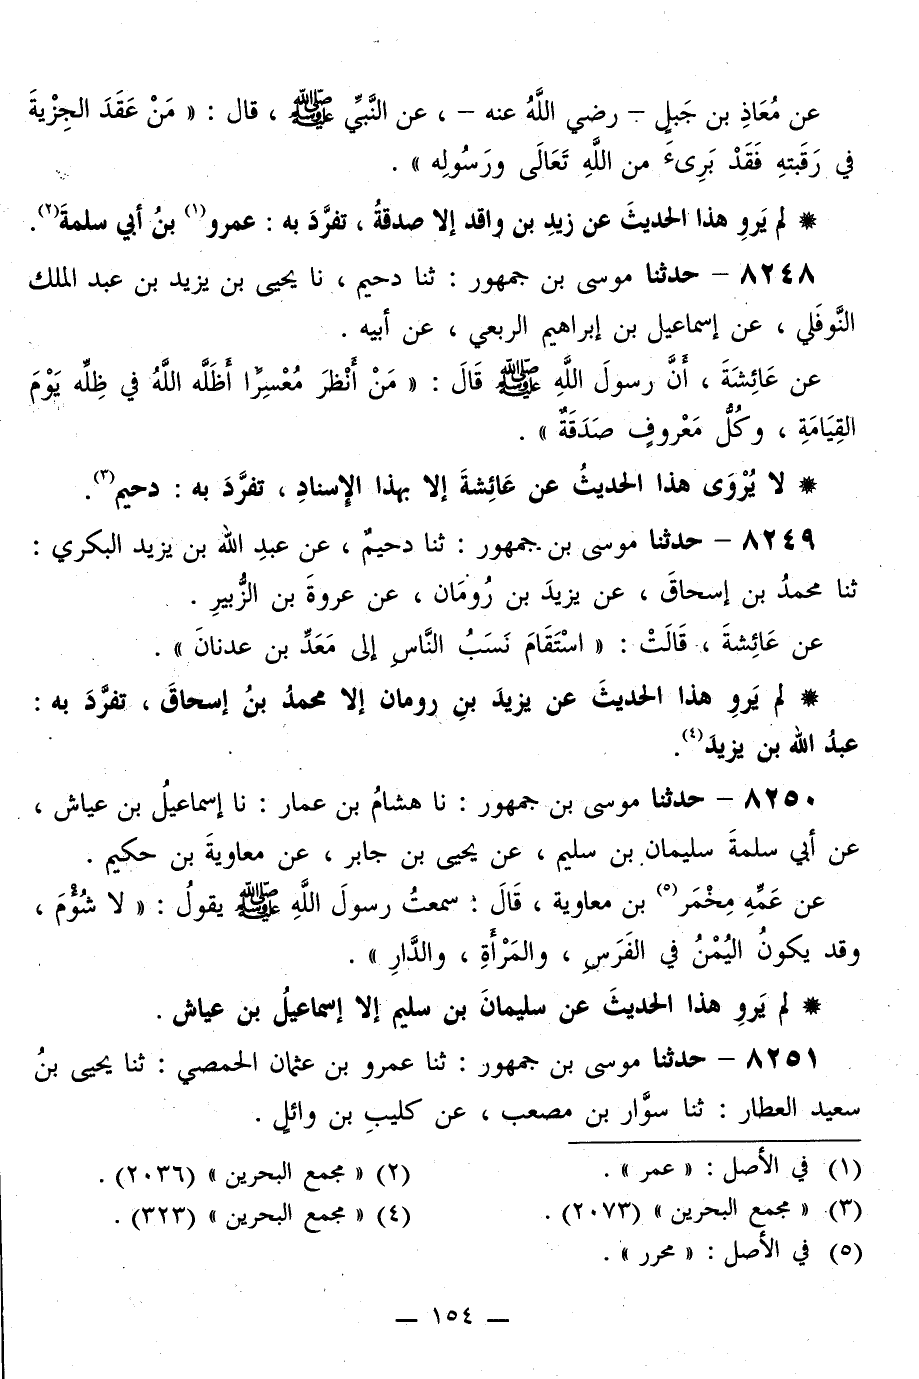 عن مُعَاذِ بن جَبلٍ – رضي اللَّهُ عنه – ، عن النَّبيِّ ﷺ ، قال : « مَنْ عَقَدَ الجِزْيةَ
في رَقَبتهِ فَقَدْ بَرِىءَ من اللَّهِ تَعَالَى ورَسُولِه » .
* لم يَروِ هذا الحديثَ عن زيدِ بن واقد إلا صدقةُ ، تفرَّدَ به : عمرو(١) بنُ أبي سلمةَ(٢).
٨٢٤٨ – حدثنا موسى بن جمهور : ثنا دحيم ، نا يحيى بن يزيد بن عبد الملك
النَّوفَلي ، عن إسماعيل بن إبراهيم الربعي ، عن أبيه .
عن عَائِشَةَ ، أَنَّ رسولَ اللَّهِ ﷺ قَالَ : « مَنْ أَنْظرَ مُعْسِرًا أَظَلَّه اللَّهُ في ظِلِّه يَوْمَ
القِيَامَةِ ، وكُلُّ مَعْروفٍ صَدَقَةٌ » .
* لا يُرْوَى هذا الحديثُ عن عَائِشةَ إلا بهذا الإسنادِ ، تفرَّدَ به : دحيم(٣).
٨٢٤٩ – حدثنا موسى بن جمهور : ثنا دحيمٌ ، عن عبدِ الله بن يزيد البكري :
ثنا محمدُ بن إسحاقَ ، عن يزيدَ بن رُومَان ، عن عروةَ بن الزُّبيرِ .
عن عَائِشةَ ، قَالَتْ : « اسْتَقَامَ نَسَبُ النَّاسِ إلى مَعَدِّ بن عدنانَ » .
* لم يَروِ هذا الحديثَ عن يزيدَ بنِ رومان إلا محمدُ بنُ إسحاقَ ، تفرَّدَ به :
عبدُ الله بن يزيدَ(٤).
٨٢٥٠ – حدثنا موسى بن جمهور : نا هشامُ بن عمار : نا إسماعيلُ بن عياش ،
عن أبي سلمةَ سليمان بن سليم ، عن يحيى بن جابر ، عن معاويةَ بن حكيم .
عن عَمِّهِ مِخْمَر(٥) بن معاوية ، قَالَ : سمعتُ رسولَ اللَّهِ ﷺ يقولُ : « لا شُؤْمَ ،
وقد يكونُ اليُمْنُ في الفَرَسِ ، والمَرْأَةِ ، والدَّارِ » .
* لم يَروِ هذا الحديثَ عن سليمانَ بن سليم إلا إسماعيلُ بن عياش .
٨٢٥١ – حدثنا موسى بن جمهور : ثنا عمرو بن عثمان الحمصي : ثنا يحيى بنُ
سعيد العطار : ثنا سوَّار بن مصعب ، عن كليبِ بن وائلٍ .
(١) في الأصل : « عمر » . (٢) « مجمع البحرين » (٢٠٣٦) .
(٣) « مجمع البحرين » (٢٠٧٣) . (٤) « مجمع البحرين » (٣٢٣) .
(٥) في الأصل : « محرر » .
— ١٥٤ —